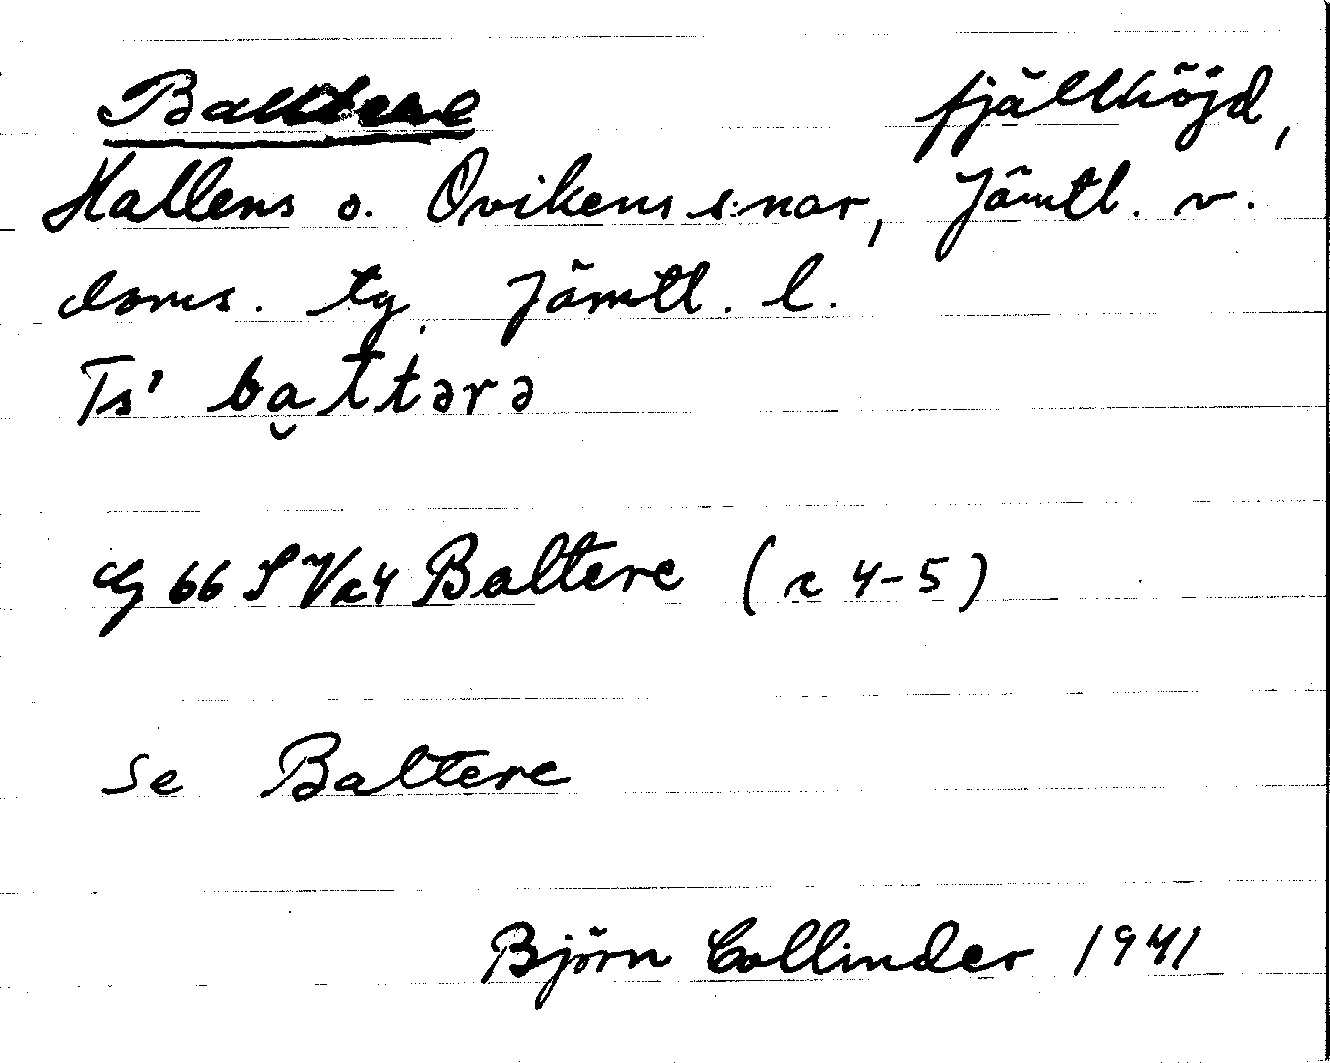 fjällhöjd,
Hallens o. Ovikens s:nar, Jämtl. v.
doms. tg. Jämtl. l.
Ts' ba̮ttərə
G 66 S Va4 Baltere (r 4-5)
Se Baltere
Björn Collinder 1941